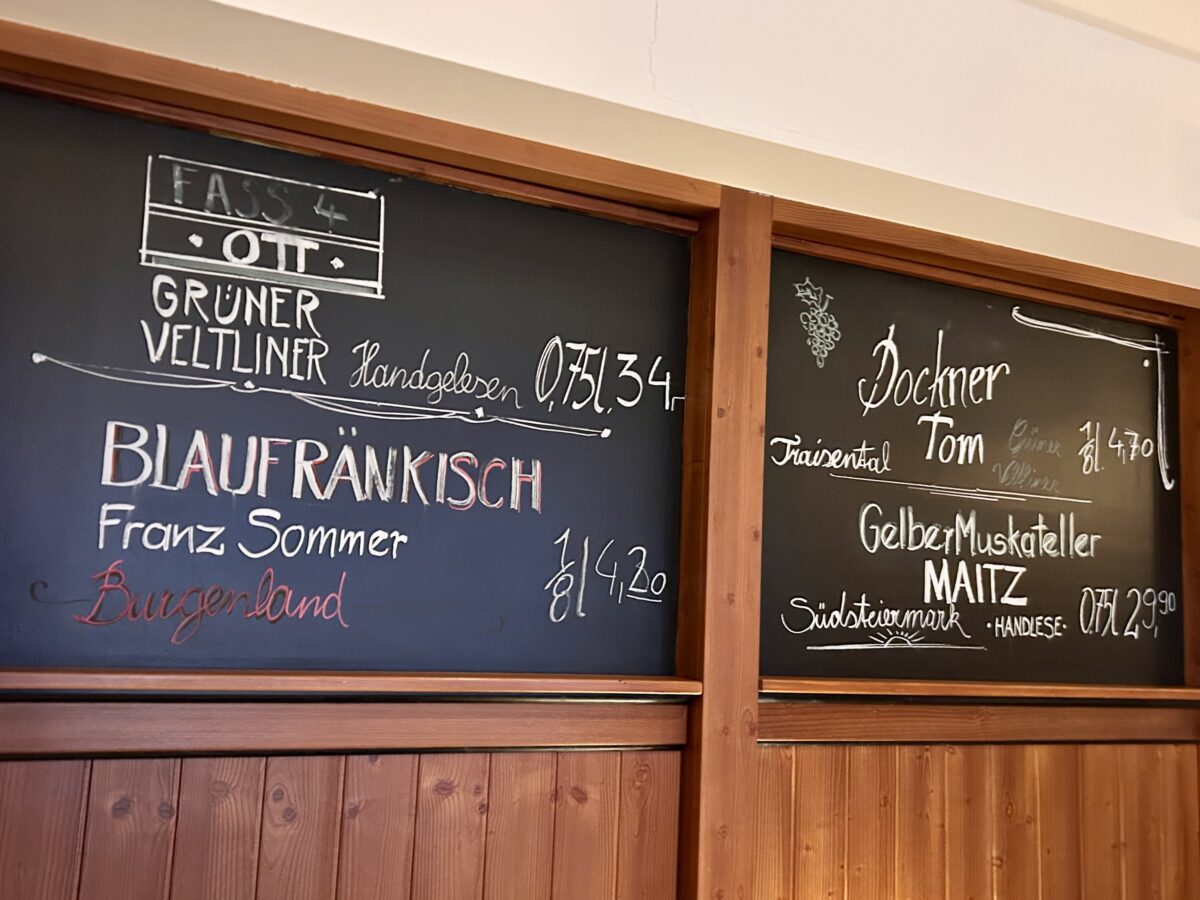 FASS 4
· OTT ·
GRÜNER
VELTLINER Handgelesen 0,75l, 34,-
BLAUFRÄNKISCH
Franz Sommer
Burgenland 1/8l 4,20
Dockner
Traisental Tom Grüner Veltliner 1/8l. 4,70
Gelber Muskateller
MAITZ
Südsteiermark · HANDLESE · 0,75l 29,90